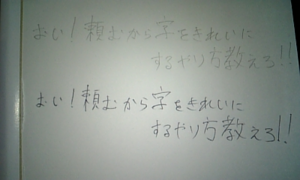 おい!頼むから字をきれいに
するやり方教えろ!!
おい!頼むから字をきれいに
するやり方教えろ!!